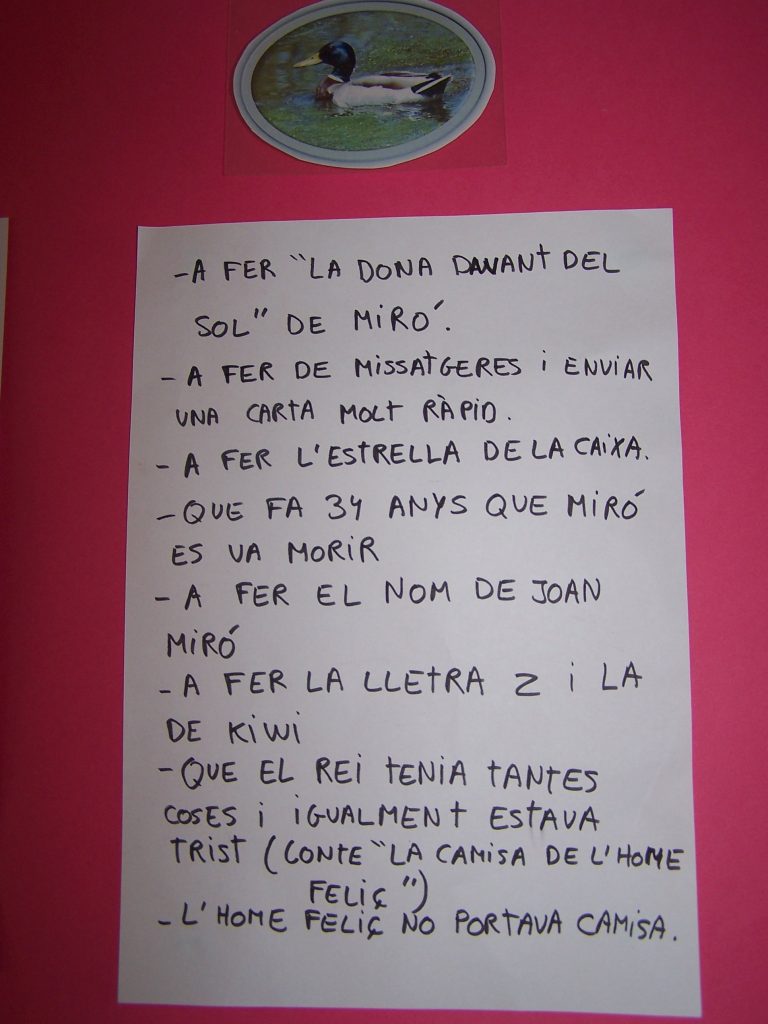 -A FER "LA DONA DAVANT DEL
SOL" DE MIRÓ.
- A FER DE MISSATGERES I ENVIAR
UNA CARTA MOLT RÀPID.
- A FER L'ESTRELLA DE LA CAIXA.
- QUE FA 34 ANYS QUE MIRÓ
ES VA MORIR
- A FER EL NOM DE JOAN
MIRÓ
- A FER LA LLETRA Z I LA
DE KIWI
- QUE EL REI TENIA TANTES
COSES I IGUALMENT ESTAVA
TRIST (CONTE "LA CAMISA DE L'HOME
FELIÇ")
- L'HOME FELIÇ NO PORTAVA CAMISA.